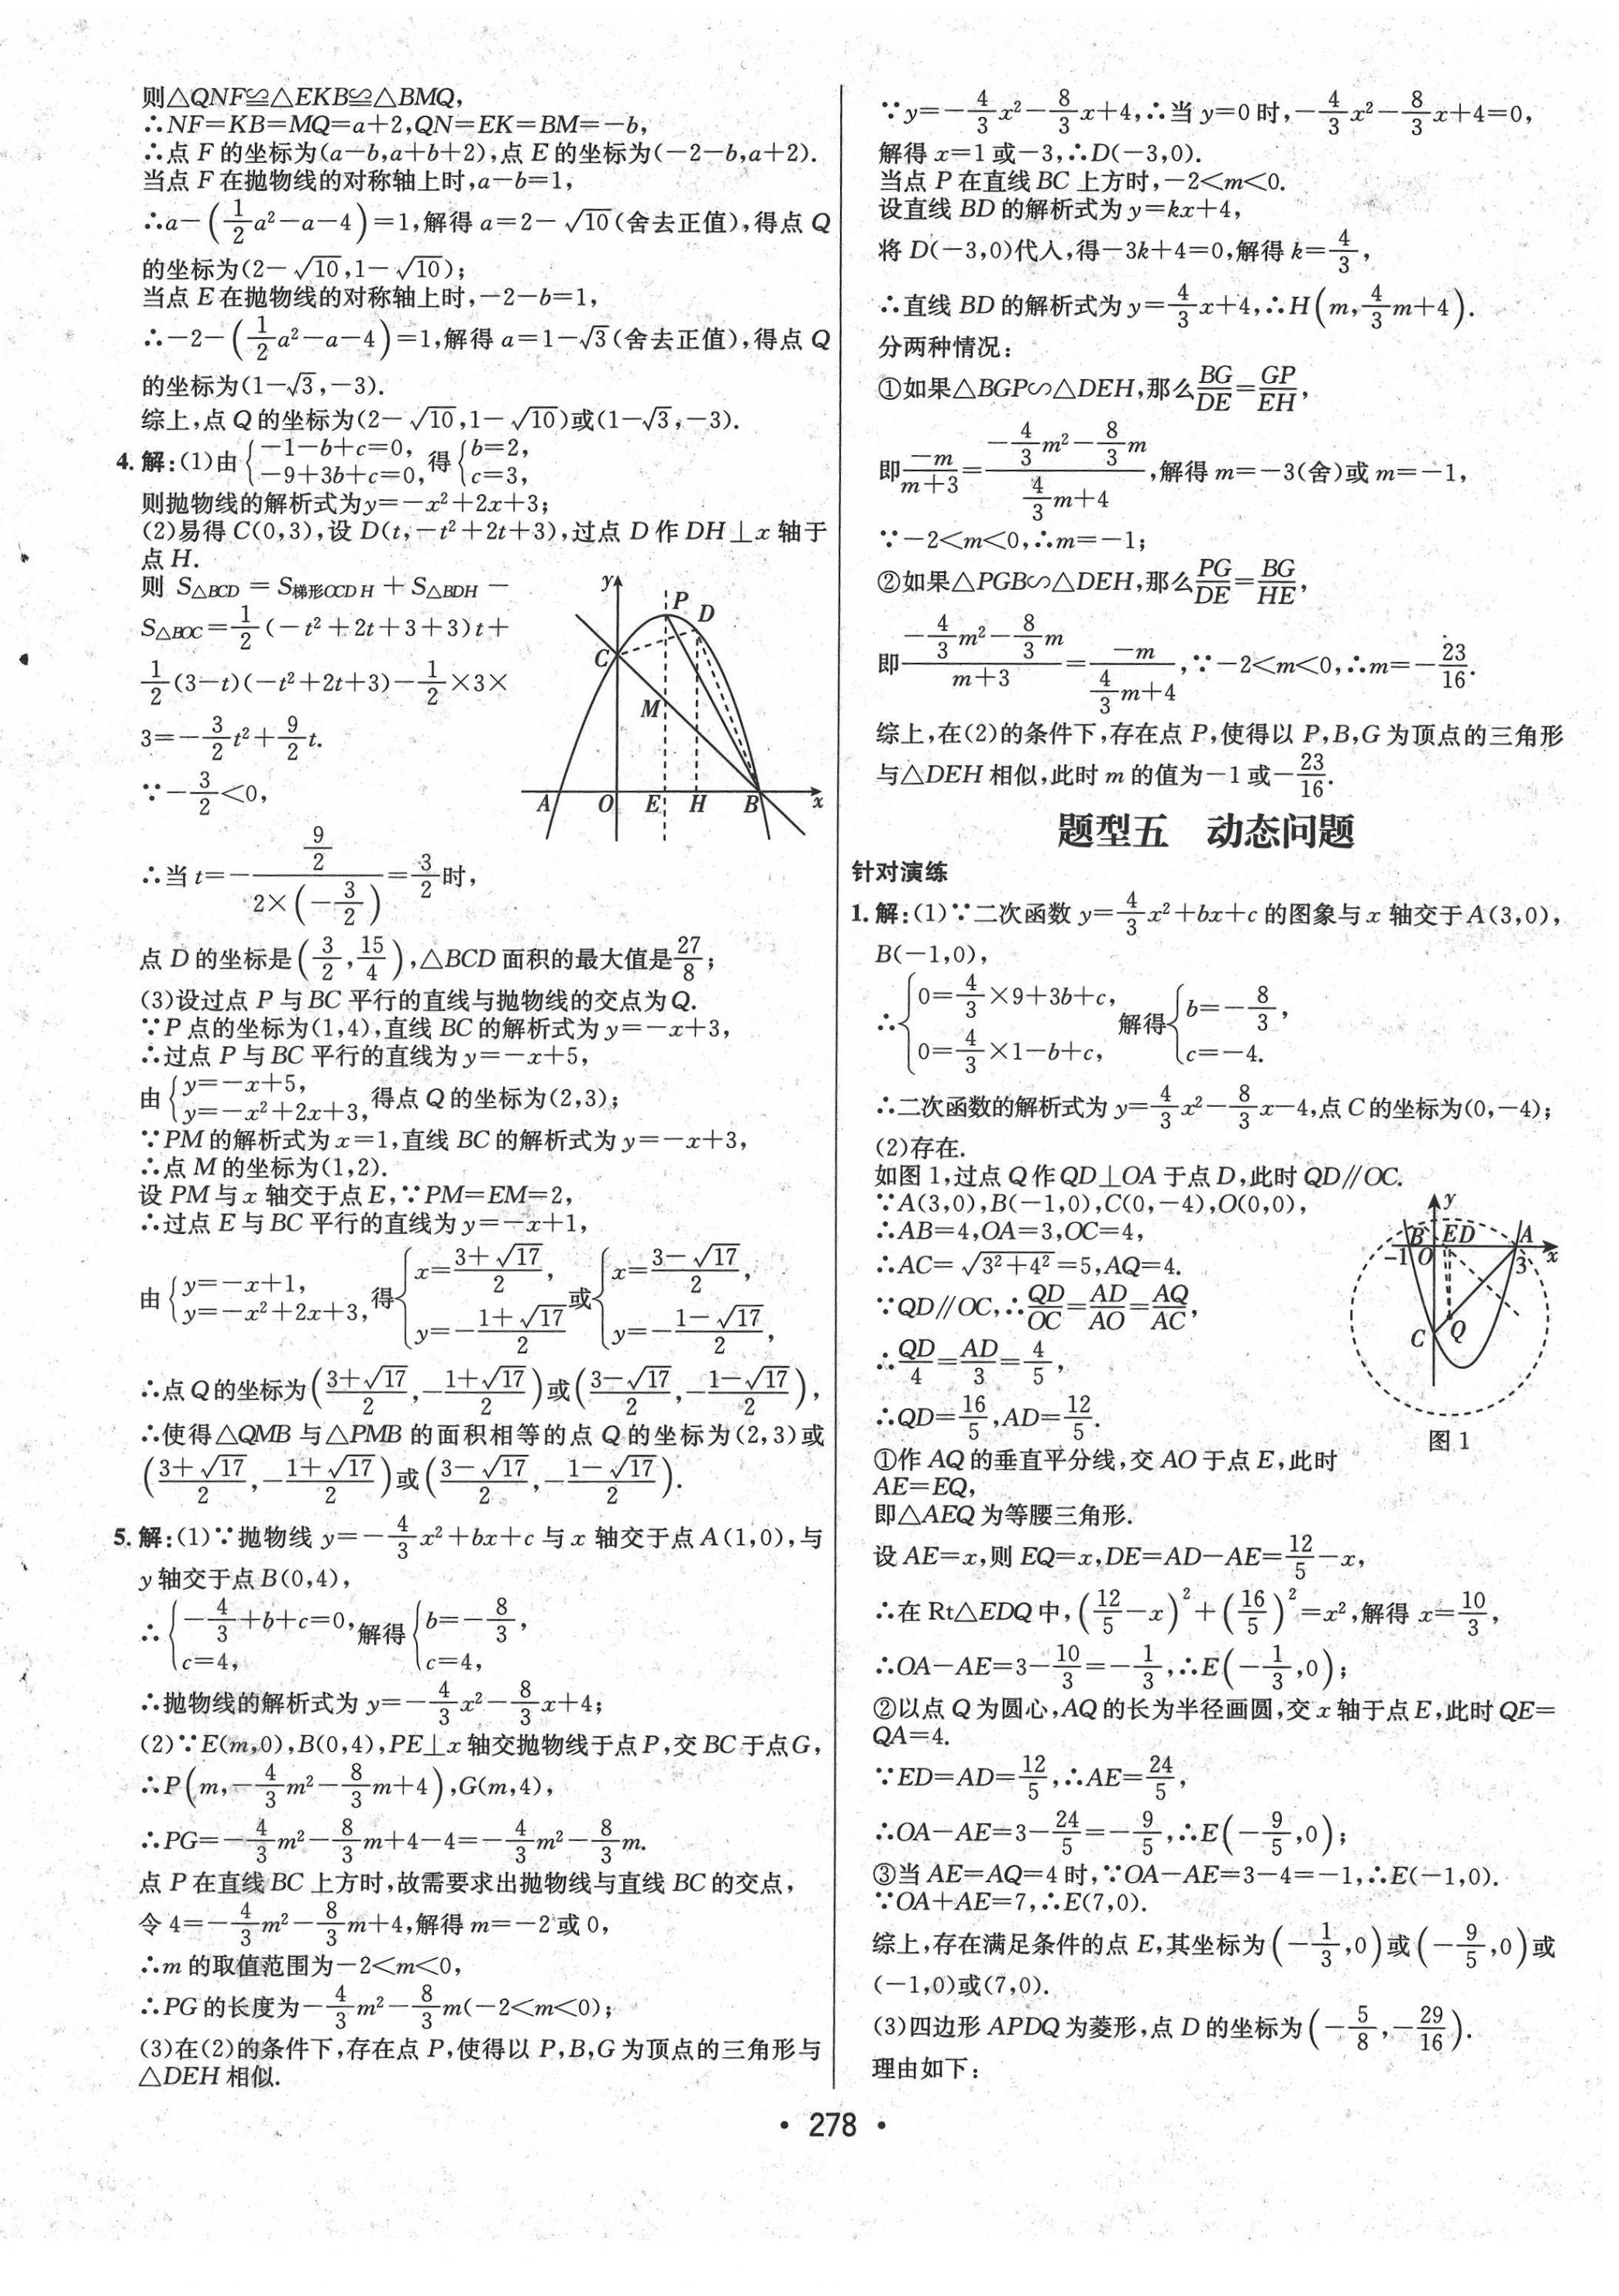 则△QNF≌△EKB≌△BMQ,
∴NF=KB=MQ=a+2,QN=EK=BM=−b,
∴点 F 的坐标为(a−b,a+b+2),点 E 的坐标为(−2−b,a+2).
当点 F 在抛物线的对称轴上时,a−b=1,
∴a−(1/2a²−a−4)=1,解得 a=2−√10(舍去正值),得点 Q
的坐标为(2−√10,1−√10);
当点 E 在抛物线的对称轴上时,−2−b=1,
∴−2−(1/2a²−a−4)=1,解得 a=1−√3(舍去正值),得点 Q
的坐标为(1−√3,−3).
综上,点 Q 的坐标为(2−√10,1−√10)或(1−√3,−3).
4. 解:(1)由{−1−b+c=0, −9+3b+c=0, 得{b=2, c=3,
则抛物线的解析式为y=−x²+2x+3;
(2)易得 C(0,3),设 D(t,−t²+2t+3),过点 D 作 DH⊥x 轴于
点 H.
则 S△BCD = S梯形OCDH + S△BDH −
S△BOC=1/2(−t²+2t+3+3)t+
1/2(3−t)(−t²+2t+3)−1/2×3×
3=−3/2t²+9/2t.
∵−3/2<0,
y P D C M A O E H B x
∴当 t=−(9/2)/(2×(−3/2))=3/2时,
点 D 的坐标是(3/2,15/4),△BCD 面积的最大值是27/8;
(3)设过点 P 与 BC 平行的直线与抛物线的交点为 Q.
∵P 点的坐标为(1,4),直线 BC 的解析式为 y=−x+3,
∴过点 P 与 BC 平行的直线为 y=−x+5,
由{y=−x+5, y=−x²+2x+3, 得点 Q 的坐标为(2,3);
∵PM 的解析式为 x=1,直线 BC 的解析式为 y=−x+3,
∴点 M 的坐标为(1,2).
设 PM 与 x 轴交于点 E,∵PM=EM=2,
∴过点 E 与 BC 平行的直线为 y=−x+1,
由{y=−x+1, y=−x²+2x+3, 得{x=(3+√17)/2, y=−(1+√17)/2 或{x=(3−√17)/2, y=−(1−√17)/2,
∴点 Q 的坐标为((3+√17)/2,−(1+√17)/2)或((3−√17)/2,−(1−√17)/2),
∴使得△QMB 与△PMB 的面积相等的点 Q 的坐标为(2,3)或
((3+√17)/2,−(1+√17)/2)或((3−√17)/2,−(1−√17)/2).
5. 解:(1)∵抛物线 y=−4/3x²+bx+c 与 x 轴交于点 A(1,0),与
y 轴交于点 B(0,4),
∴{−4/3+b+c=0, c=4, 解得{b=−8/3, c=4,
∴抛物线的解析式为 y=−4/3x²−8/3x+4;
(2)∵E(m,0),B(0,4),PE⊥x 轴交抛物线于点 P,交 BC 于点 G,
∴P(m,−4/3m²−8/3m+4),G(m,4),
∴PG=−4/3m²−8/3m+4−4=−4/3m²−8/3m.
点 P 在直线 BC 上方时,故需要求出抛物线与直线 BC 的交点,
令 4=−4/3m²−8/3m+4,解得 m=−2 或 0,
∴m 的取值范围为−2<m<0,
∴PG 的长度为−4/3m²−8/3m(−2<m<0);
(3)在(2)的条件下,存在点 P,使得以 P,B,G 为顶点的三角形与
△DEH 相似.
∵y=−4/3x²−8/3x+4,∴当 y=0 时,−4/3x²−8/3x+4=0,
解得 x=1 或−3,∴D(−3,0).
当点 P 在直线 BC 上方时,−2<m<0.
设直线 BD 的解析式为 y=kx+4,
将 D(−3,0)代入,得−3k+4=0,解得 k=4/3,
∴直线 BD 的解析式为 y=4/3x+4,∴H(m,4/3m+4).
分两种情况:
①如果△BGP∽△DEH,那么BG/DE=GP/EH,
即−m/(m+3)=(−4/3m²−8/3m)/(4/3m+4),解得 m=−3(舍)或 m=−1,
∵−2<m<0,∴m=−1;
②如果△PGB∽△DEH,那么PG/DE=BG/HE,
即(−4/3m²−8/3m)/(m+3)=−m/(4/3m+4),∵−2<m<0,∴m=−23/16.
综上,在(2)的条件下,存在点 P,使得以 P,B,G 为顶点的三角形
与△DEH 相似,此时 m 的值为−1 或−23/16.
题型五 动态问题
针对演练
1. 解:(1)∵二次函数 y=4/3x²+bx+c 的图象与 x 轴交于 A(3,0),
B(−1,0),
∴{0=4/3×9+3b+c, 0=4/3×1−b+c, 解得{b=−8/3, c=−4.
∴二次函数的解析式为 y=4/3x²−8/3x−4,点 C 的坐标为(0,−4);
(2)存在.
如图 1,过点 Q 作 QD⊥OA 于点 D,此时 QD∥OC.
∵A(3,0),B(−1,0),C(0,−4),O(0,0),
∴AB=4,OA=3,OC=4,
∴AC=√3²+4²=5,AQ=4.
∵QD∥OC,∴QD/OC=AD/AO=AQ/AC,
∴QD/4=AD/3=4/5,
∴QD=16/5,AD=12/5.
y B E D A −1 O 3 x C Q
图 1
①作 AQ 的垂直平分线,交 AO 于点 E,此时
AE=EQ,
即△AEQ 为等腰三角形.
设 AE=x,则 EQ=x,DE=AD−AE=12/5−x,
∴在 Rt△EDQ 中,(12/5−x)²+(16/5)²=x²,解得 x=10/3,
∴OA−AE=3−10/3=−1/3,∴E(−1/3,0);
②以点 Q 为圆心,AQ 的长为半径画圆,交 x 轴于点 E,此时 QE=
QA=4.
∵ED=AD=12/5,∴AE=24/5,
∴OA−AE=3−24/5=−9/5,∴E(−9/5,0);
③当 AE=AQ=4 时,∵OA−AE=3−4=−1,∴E(−1,0).
∵OA+AE=7,∴E(7,0).
综上,存在满足条件的点 E,其坐标为(−1/3,0)或(−9/5,0)或
(−1,0)或(7,0).
(3)四边形 APDQ 为菱形,点 D 的坐标为(−5/8,−29/16).
理由如下:
• 278 •